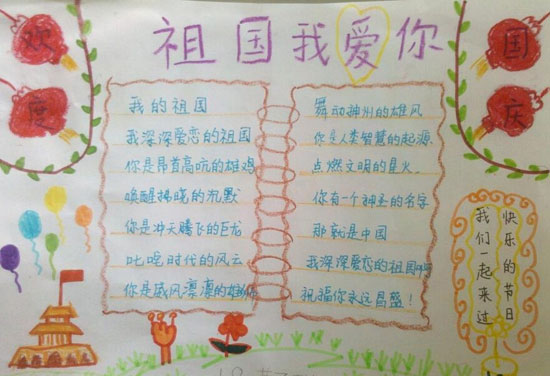 祖国我爱你
欢度
国庆
我的祖国
我深深爱恋的祖国
你是昂首高吭的雄鸡
唤醒拂晓的沉默
你是冲天腾飞的巨龙
叱咤时代的风云
你是威风凛凛的雄狮
舞动神州的雄风
你是人类智慧的起源
点燃文明的星火
你有一个神圣的名字
那就是中国
我深深爱恋的祖国啊
祝福你永远昌盛！
快乐的节日
我们一起来过